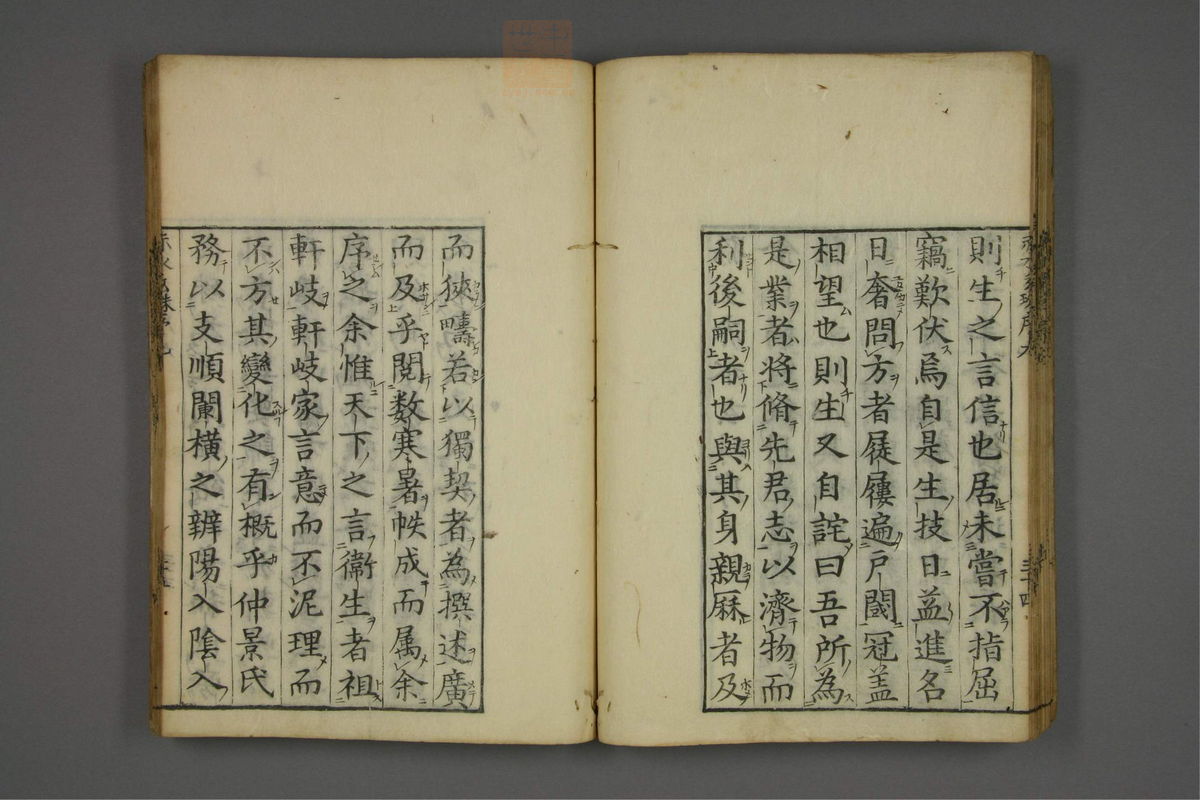 則生之言信也居未嘗不指屈
竊歎伏爲自是生技日益進名
日奢問方者屐屨遍戸閾冠盖
相望也則生又自詫曰吾所為
是業者将脩先君志以濟物而
利後嗣者也與其身親厤者及
而狹疇若以獨契者為撰述廣
而及乎閲数寒暑帙成而属余
序之余惟天下之言衞生者祖
軒岐軒岐家言意而不泥理而
不方其變化之有概乎仲景氏
務以支順闌横之辨陽入陰入